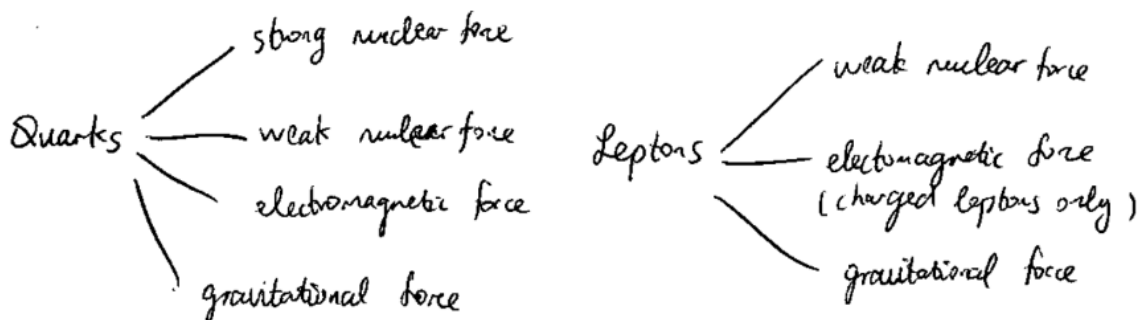 Quarks
strong nuclear force
weak nuclear force
electromagnetic force
gravitational force
Leptons
weak nuclear force
electomagnetic force
(charged leptons only)
gravitational force